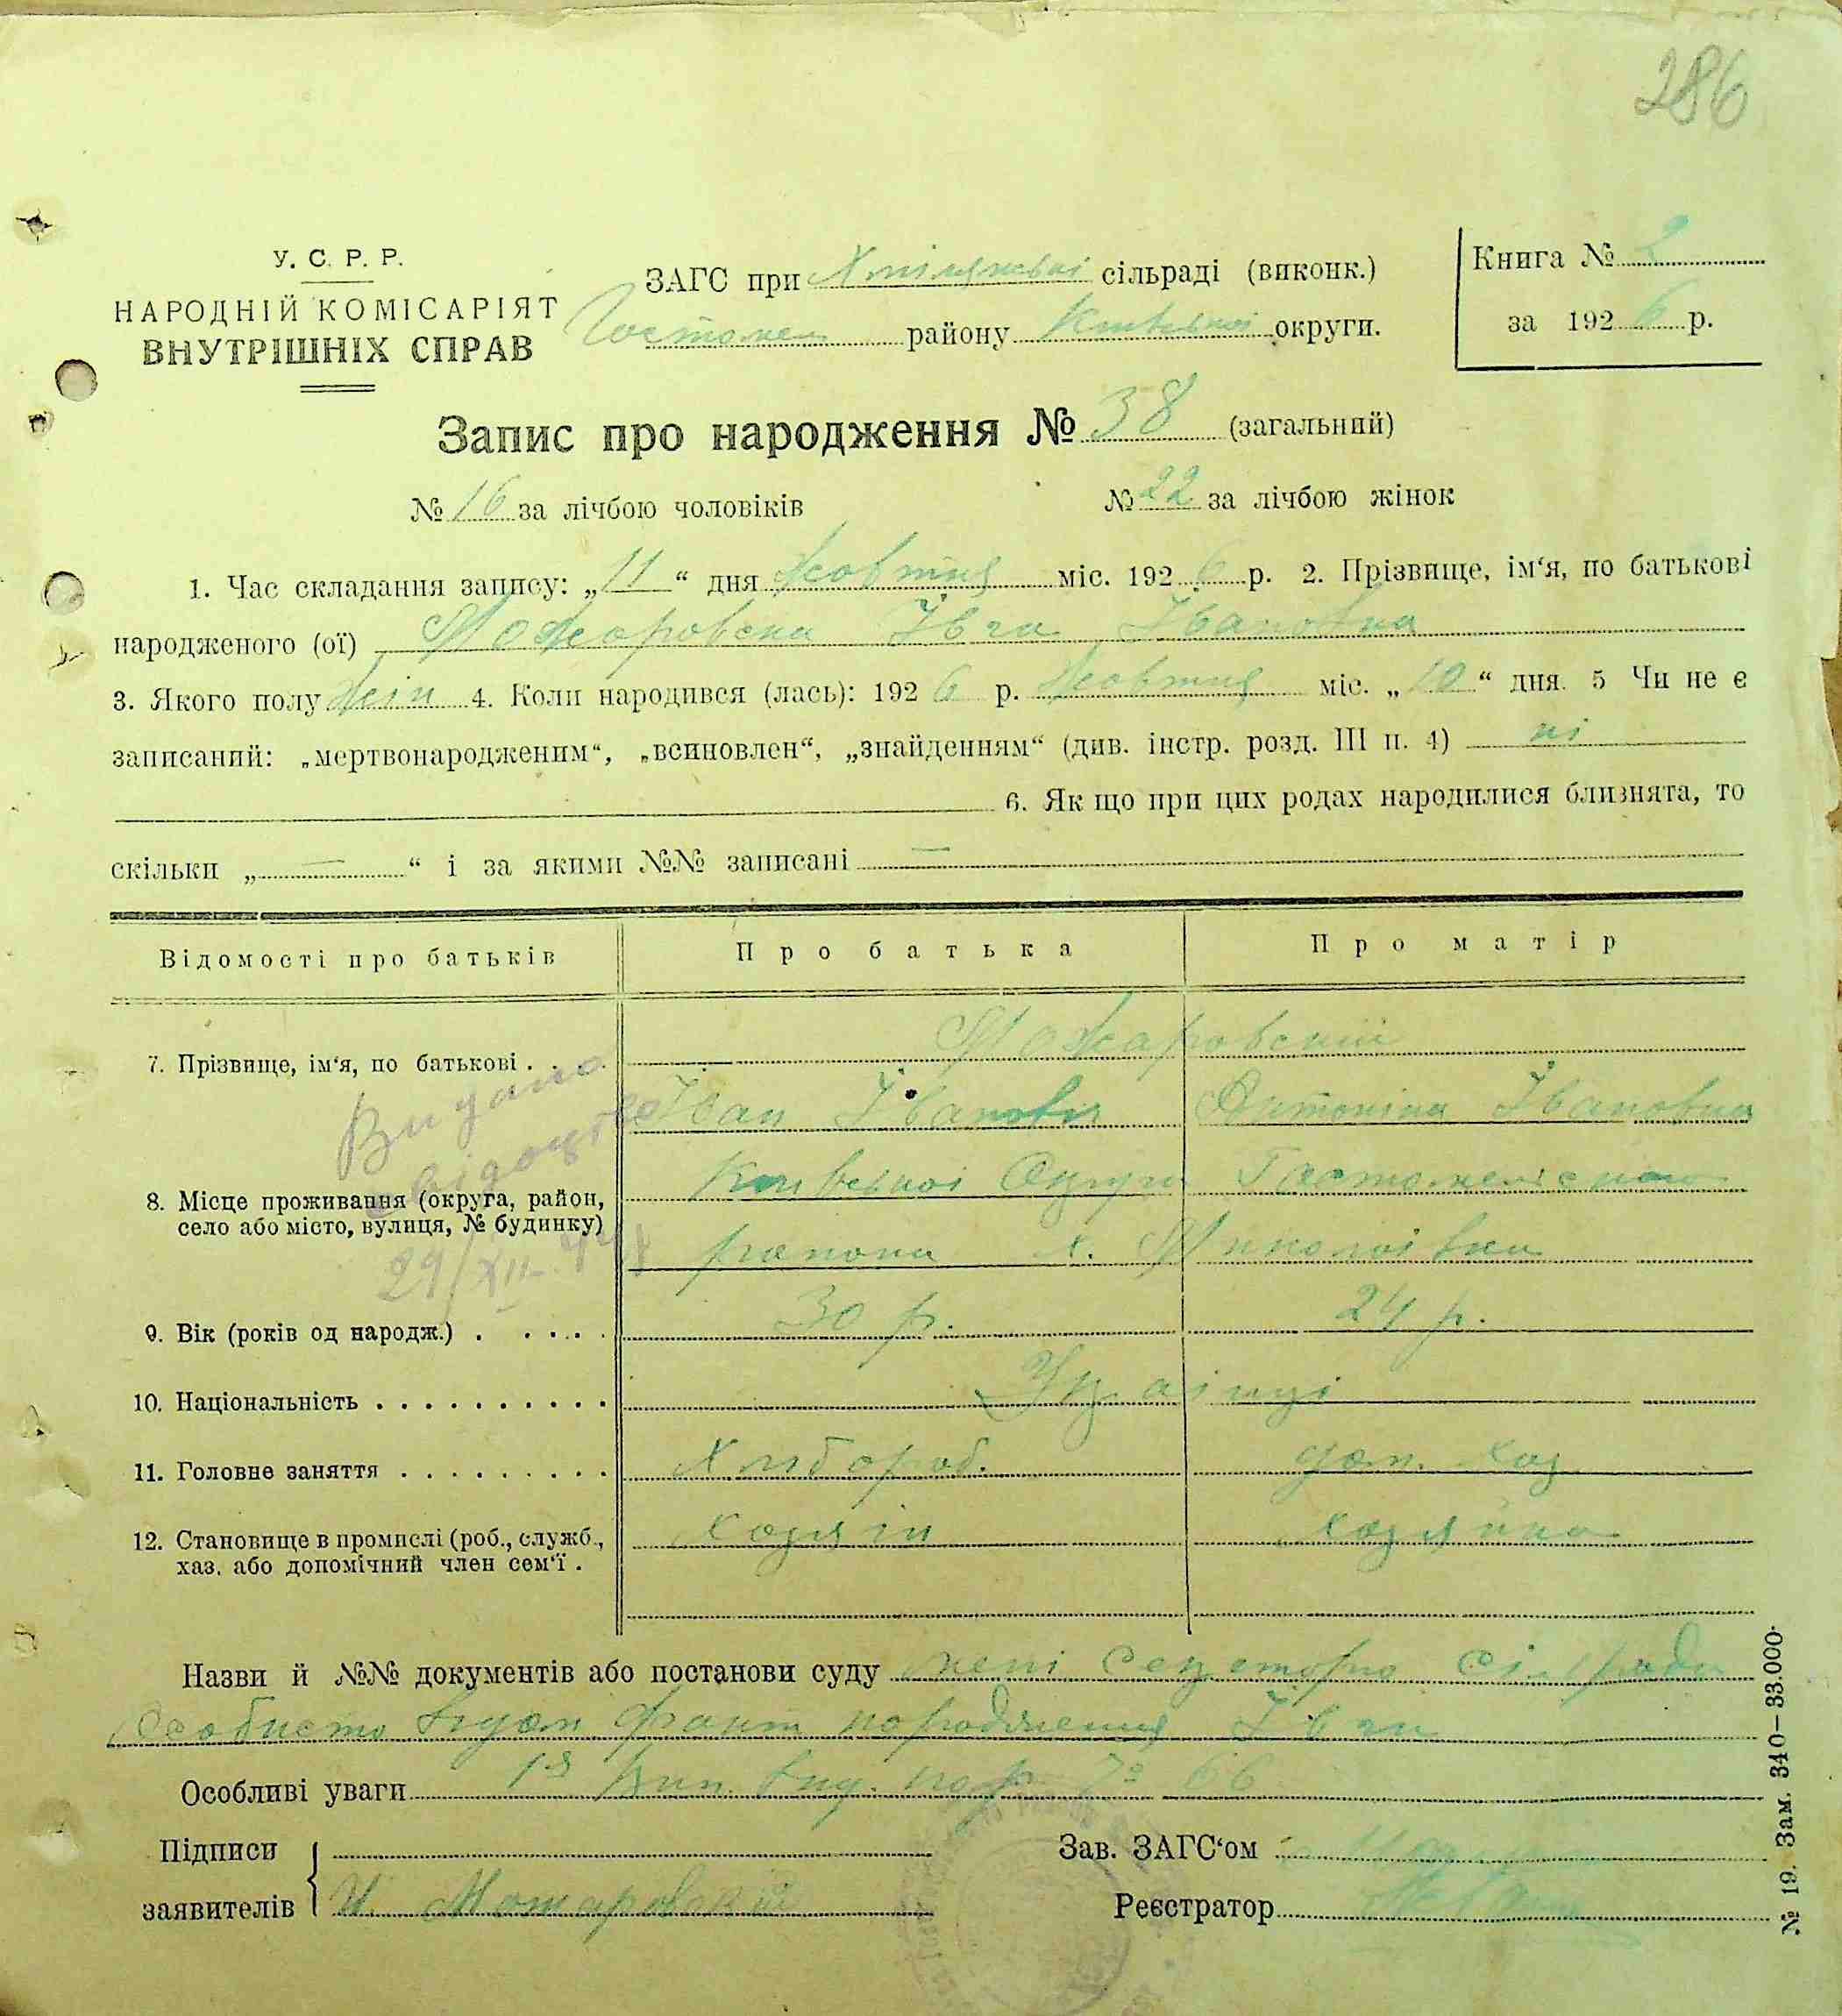 286
У. С. Р. Р.
НАРОДНІЙ КОМІСАРІЯТ
ВНУТРІШНІХ СПРАВ
ЗАГС при сільраді (виконк.)
Гостомел району Київської округи.
Книга № 2
за 1926 р.
Запис про народження № 38 (загальний)
№ 16 за лічбою чоловіків № 22 за лічбою жінок
1. Час складання запису: „11“ дня Жовтня міс. 1926 р. 2. Прізвище, ім‘я, по батькові
народженого (ої) Можаровска Івга Івановна
3. Якого полу жін 4. Коли народився (лась): 1926 р. Жовтня міс. „10“ дня. 5 Чи не є
записаний: „мертвонародженим“, „всиновлен“, „знайденням“ (див. інстр. розд. III п. 4) ні
6. Як що при цих родах народилися близнята, то
скільки „—“ і за якими №№ записані —
Відомості про батьків Про батька Про матір
7. Прізвище, ім‘я, по батькові . . . Можаровский
Іван Іванович Антоніна Івановна
Видано
8. Місце проживання (округа, район, село або місто, вулиця, № будинку) Київської Округи Гостомельского
района х. Миколаївка
29/XII
9. Вік (років од народж.) . . . . . 30 р. 24 р.
10. Національність . . . . . . . . . . Українці
11. Головне заняття . . . . . . . . . Хлібороб. дом. хоз
12. Становище в промислі (роб., служб., хаз. або допомічний член сем‘ї . хозяїн хозяйка
Назви й №№ документів або постанови суду мені Секретарю сільради
Особисто відом факт народження Івги
Особливі уваги 66
Підписи
заявителів И. Можаровский
Зав. ЗАГС‘ом
Реєстратор
№ 19. Зам. 340—33.000·